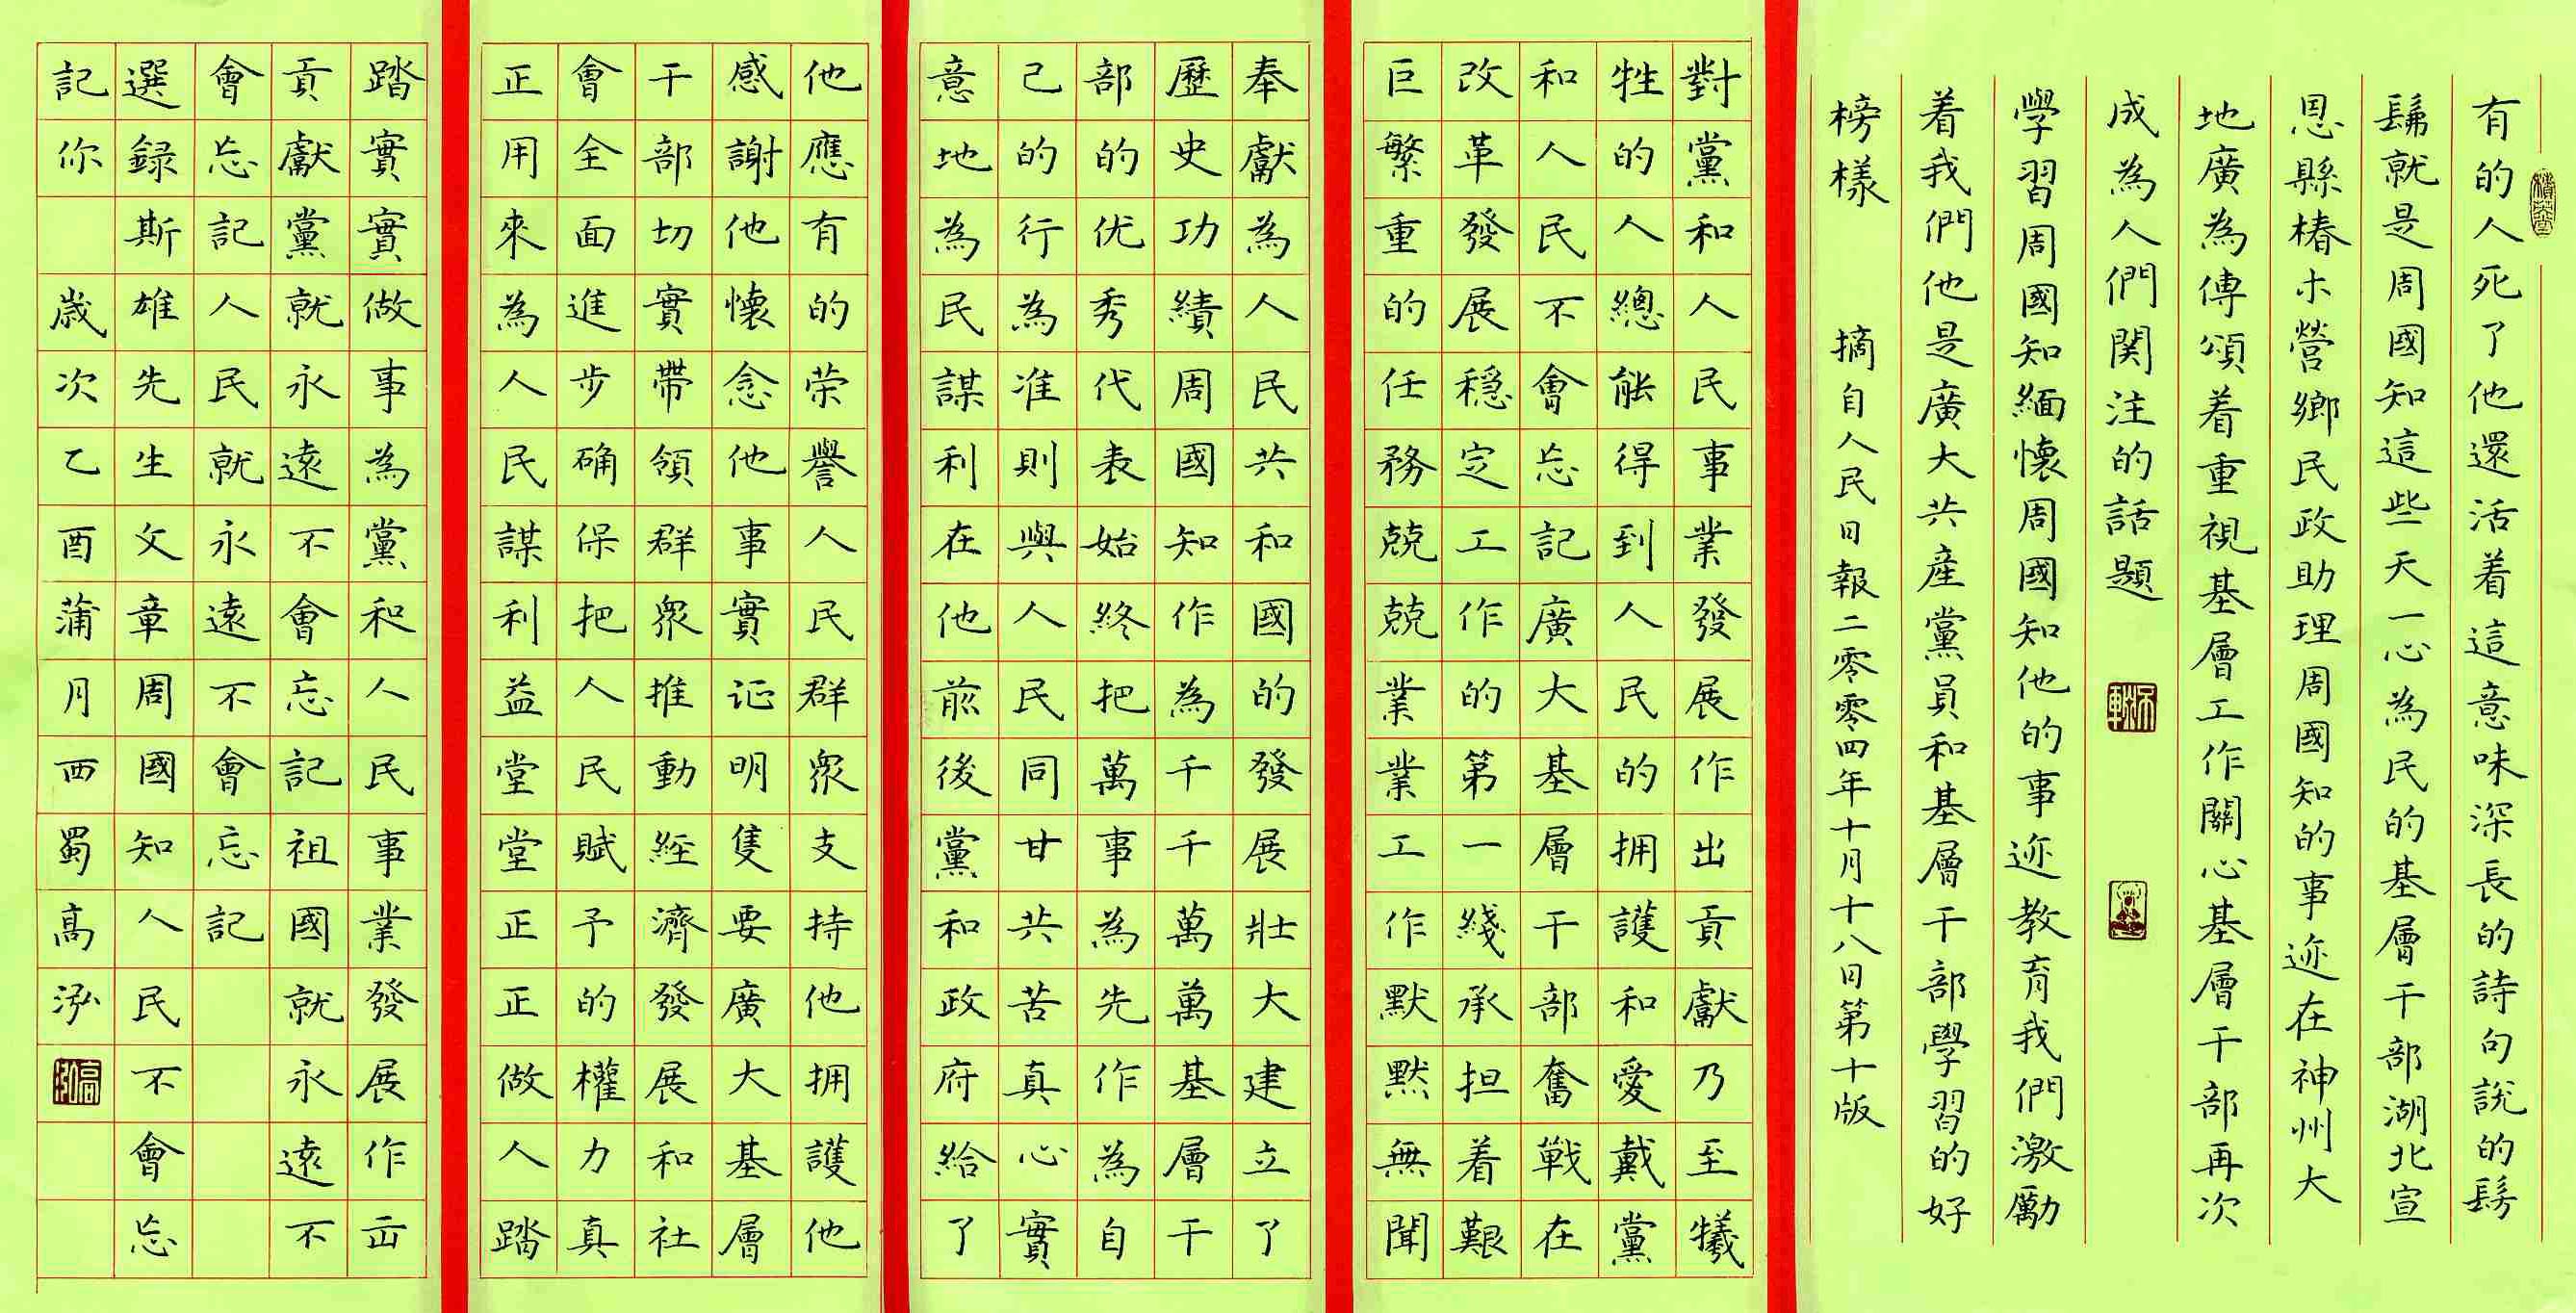 有的人死了他還活着這意味深長的詩句說的髣
髴就是周國知這些天一心為民的基層干部湖北宣
恩縣椿木營鄉民政助理周國知的事迹在神州大
地廣為傳頌着重視基層工作關心基層干部再次
成為人們関注的話題
學習周國知緬懷周國知他的事迹教育我們激勵
着我們他是廣大共産黨員和基層干部學習的好
榜樣 摘自人民日報二零零四年十月十八日第十版
對黨和人民事業發展作出貢獻乃至犧
牲的人總能得到人民的拥護和愛戴黨
和人民不會忘記廣大基層干部奮戰在
改革發展穩定工作的第一綫承担着艱
巨繁重的任務兢兢業業工作默默無聞
奉獻為人民共和國的發展壯大建立了
歷史功績周國知作為千千萬萬基層干
部的优秀代表始終把萬事為先作為自
己的行為准則與人民同甘共苦真心實
意地為民謀利在他前後黨和政府給了
他應有的荣譽人民群眾支持他拥護他
感謝他懷念他事實证明隻要廣大基層
干部切實帶領群眾推動経濟發展和社
會全面進步确保把人民賦予的權力真
正用來為人民謀利益堂堂正正做人踏
踏實實做事為黨和人民事業發展作出
貢獻黨就永遠不會忘記祖國就永遠不
會忘記人民就永遠不會忘記
選録斯雄先生文章周國知人民不會忘
記你 歲次乙酉蒲月西蜀高泓
高泓